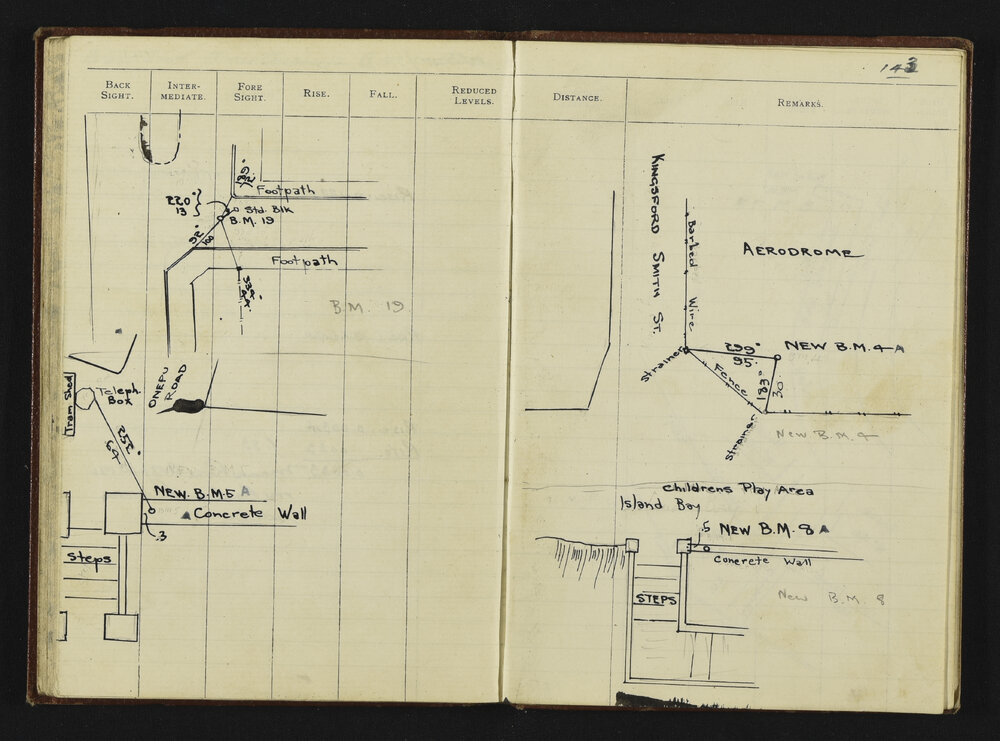 143
BACK SIGHT.
INTER-MEDIATE.
FORE SIGHT.
RISE.
FALL.
REDUCED LEVELS.
DISTANCE.
REMARKS.
Footpath
Std. Blk
B.M. 19
220°
13
92°
100
Footpath
339°
B.M. 19
ONEPU ROAD
Tram Shed
Teleph. Box
252°
64
NEW. B.M.5 A
Concrete Wall
.3
Steps
KINGSFORD SMITH ST.
Barbed Wire
AERODROME
299°
95.
NEW B.M. 4 A
Strainer
Fence
183°
30.
Strainer
New B.M. 4
Childrens Play Area
Island Bay
.5
NEW B.M. 8 A
Concrete Wall
STEPS
New B.M. 8